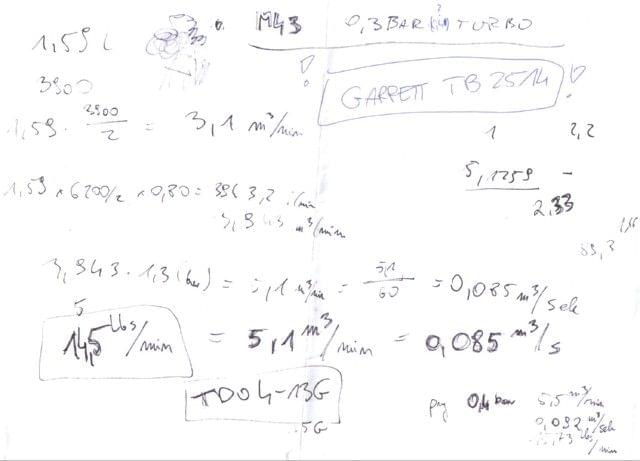 M43 0,3 BAR TURBO
1,59 L
3900
GARRETT TB 2514
1,59 · 3900/2 = 3,1 m³/min
1 2,2
5,1259 -
2,33
1,59 × 6200/2 × 0,80 = 3943,2 l/min
3,943 m³/min
83,3
3,943 · 1,3 (bar) = 5,1 m³/min = 5,1/60 = 0,085 m³/sek
5
14,5 Lbs/min = 5,1 m³/min = 0,085 m³/s
TD04-13G
5G
przy 0,4 bar 5,5 m³/min
0,092 m³/sek
lbs/min